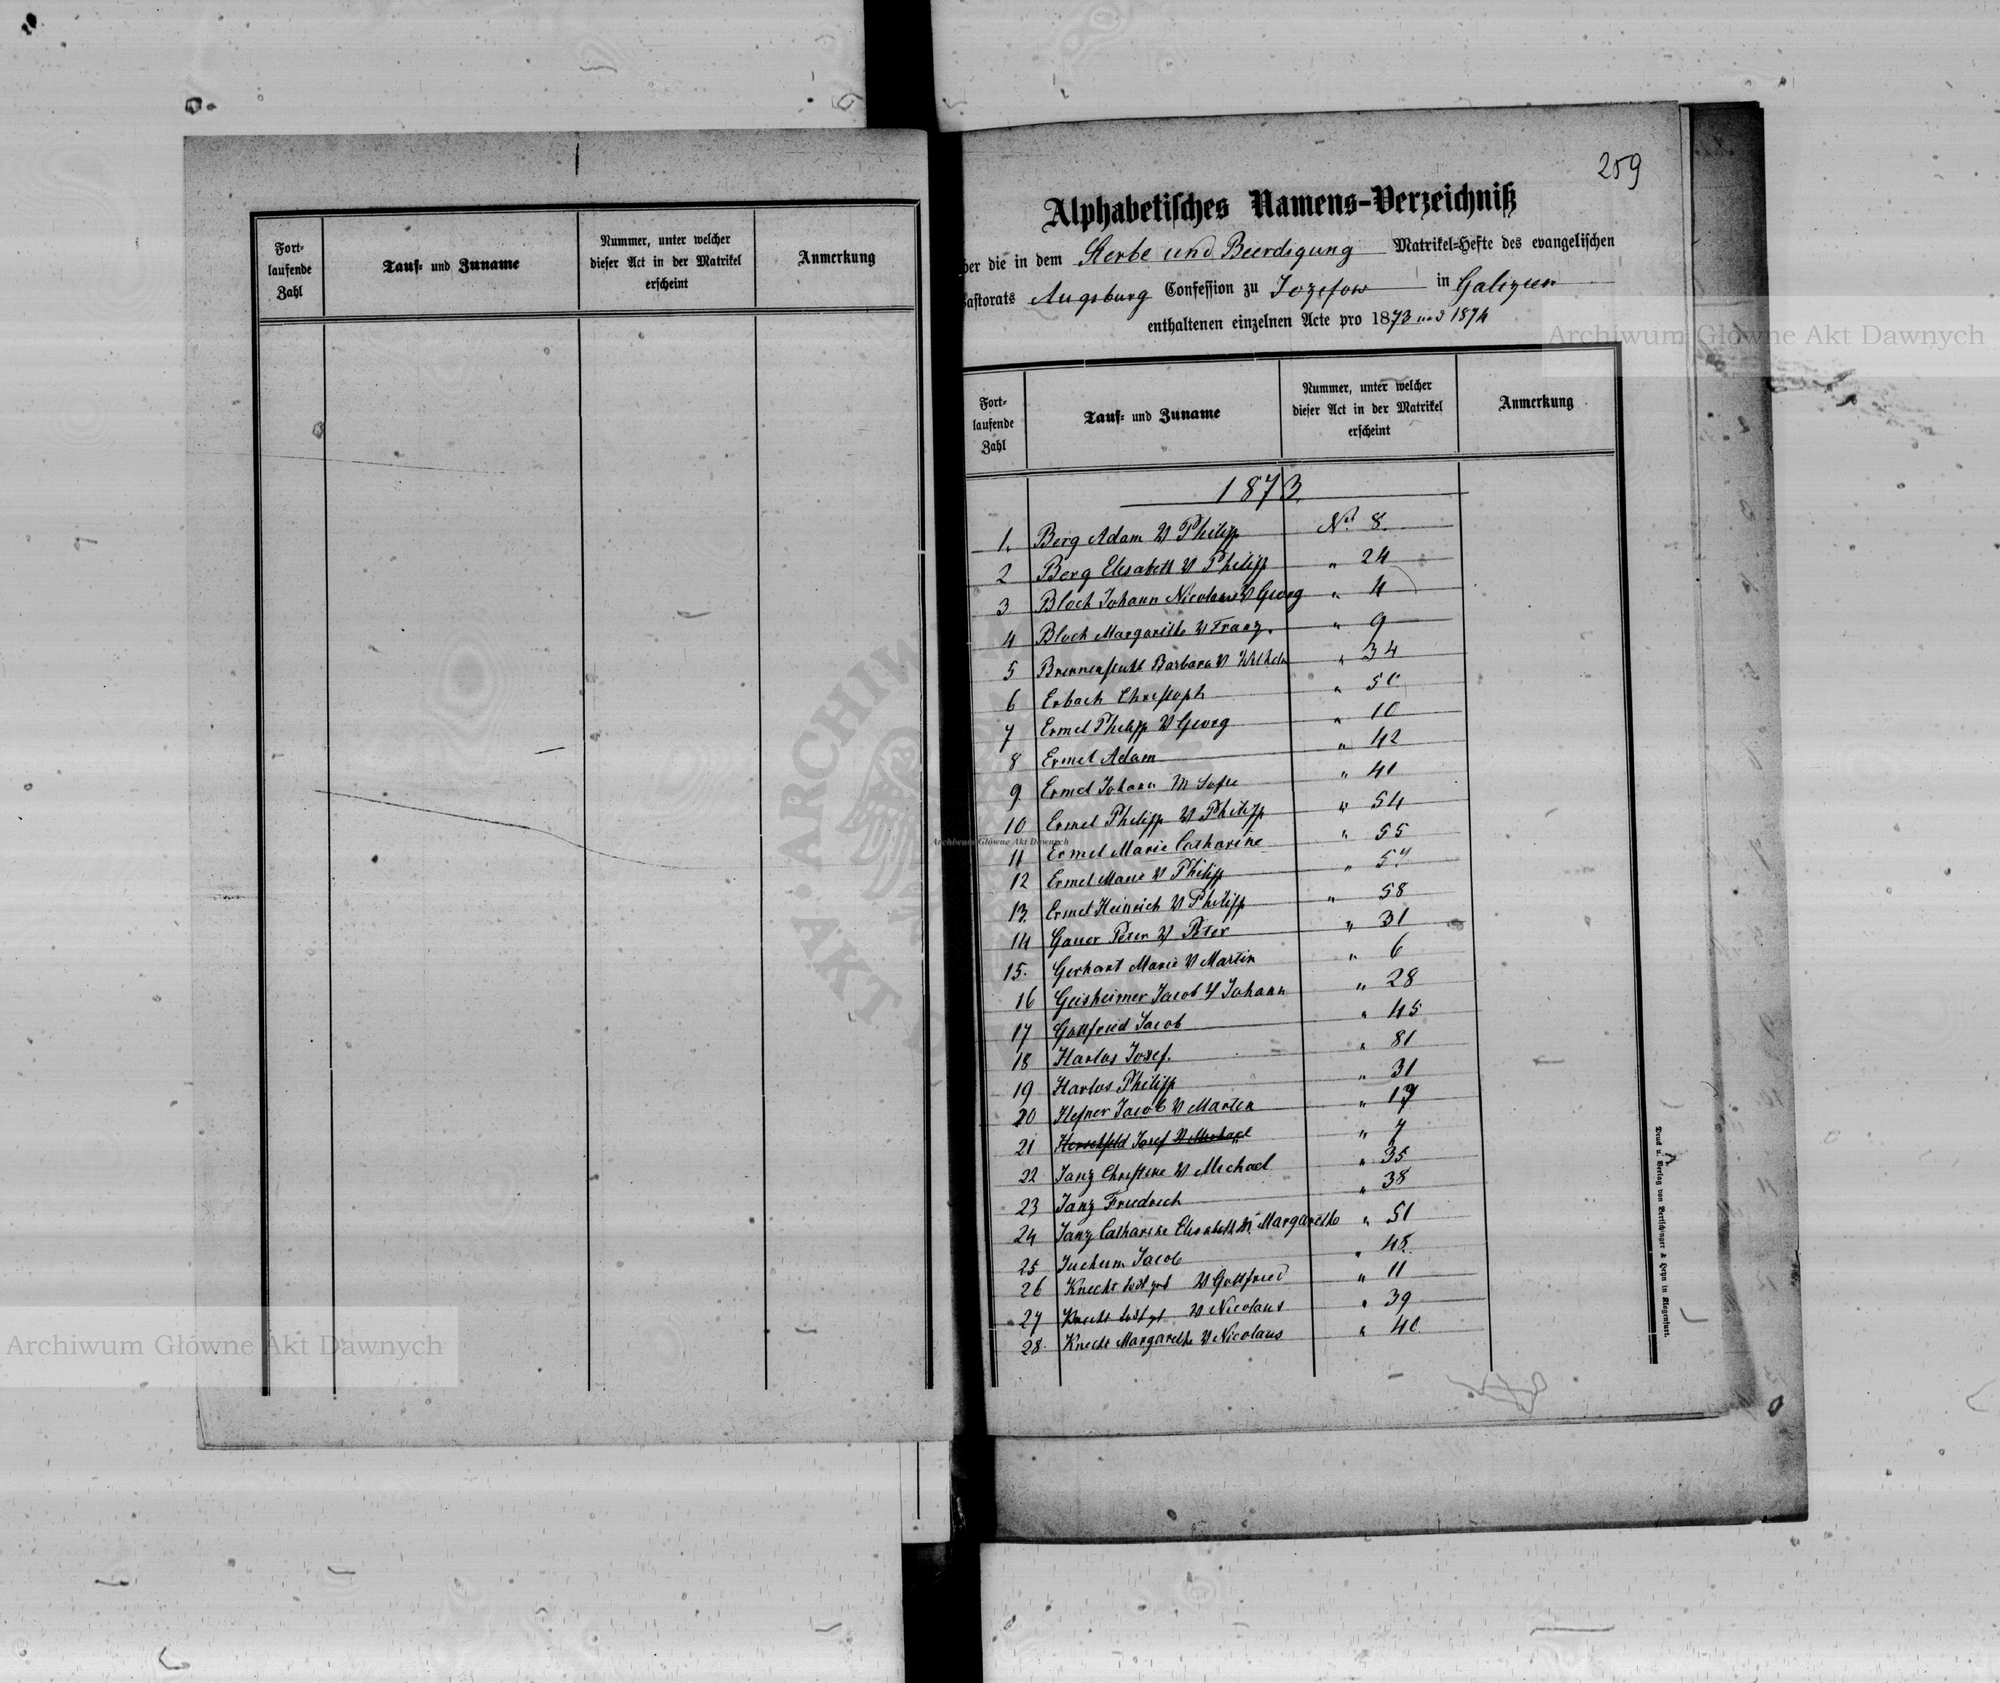 Fort-
laufende
Zahl
Tauf- und Zuname
Nummer, unter welcher
dieser Act in der Matrikel
erscheint
Anmerkung
259
Alphabetisches Namens-Verzeichniß
über die in dem Sterbe und Beerdigung Matrikel-Hefte des evangelischen
Pastorats Augsburg Confession zu Jozefow in Galizien
enthaltenen einzelnen Acte pro 1873 und 1874
Fort-
laufende
Zahl
Tauf- und Zuname
Nummer, unter welcher
dieser Act in der Matrikel
erscheint
Anmerkung
1873.
1. Berg Adam V Philipp No 8.
2 Berg Elisabeth V Philipp " 24
3 Bloch Johann Nicolaus V Georg " 4
4 Bloch Margarethe V Franz. " 9
5 Brennenstuhl Barbara V Wilhelm " 34
6 Erbach Christoph " 50
7 Ermel Philipp V Georg " 10
8 Ermel Adam " 42
9 Ermel Johann M Sofie " 41
10 Ermel Philipp V Philipp " 54
11 Ermel Marie Catharine " 55
12 Ermel Marie V Philipp " 57
13. Ermel Heinrich V Philipp " 58
14 Gauer Peter V Peter " 31
15. Gerhart Marie V Martin " 6
16 Geisheimer Jacob V Johann " 28
17 Gottfried Jacob " 45
18 Harlos Josef. " 81
19 Harlos Philipp " 31
20 Hefner Jacob V Martin " 17
21 Herschfeld Josef V Michael " 7
22 Janz Christine V Michael " 35
23 Janz Friedrich " 38
24 Janz Catharine Elisabeth M. Margarethe " 51
25 Juchum Jacob " 48.
26 Knecht V Gottfried " 11
27 Knecht V Nicolaus " 39
28. Knecht Margarethe V Nicolaus " 40.
Druck u. Verlag von Bertschinger & Heyn in Klagenfurt.
Archiwum Główne Akt Dawnych
Archiwum Główne Akt Dawnych
Archiwum Główne Akt Dawnych